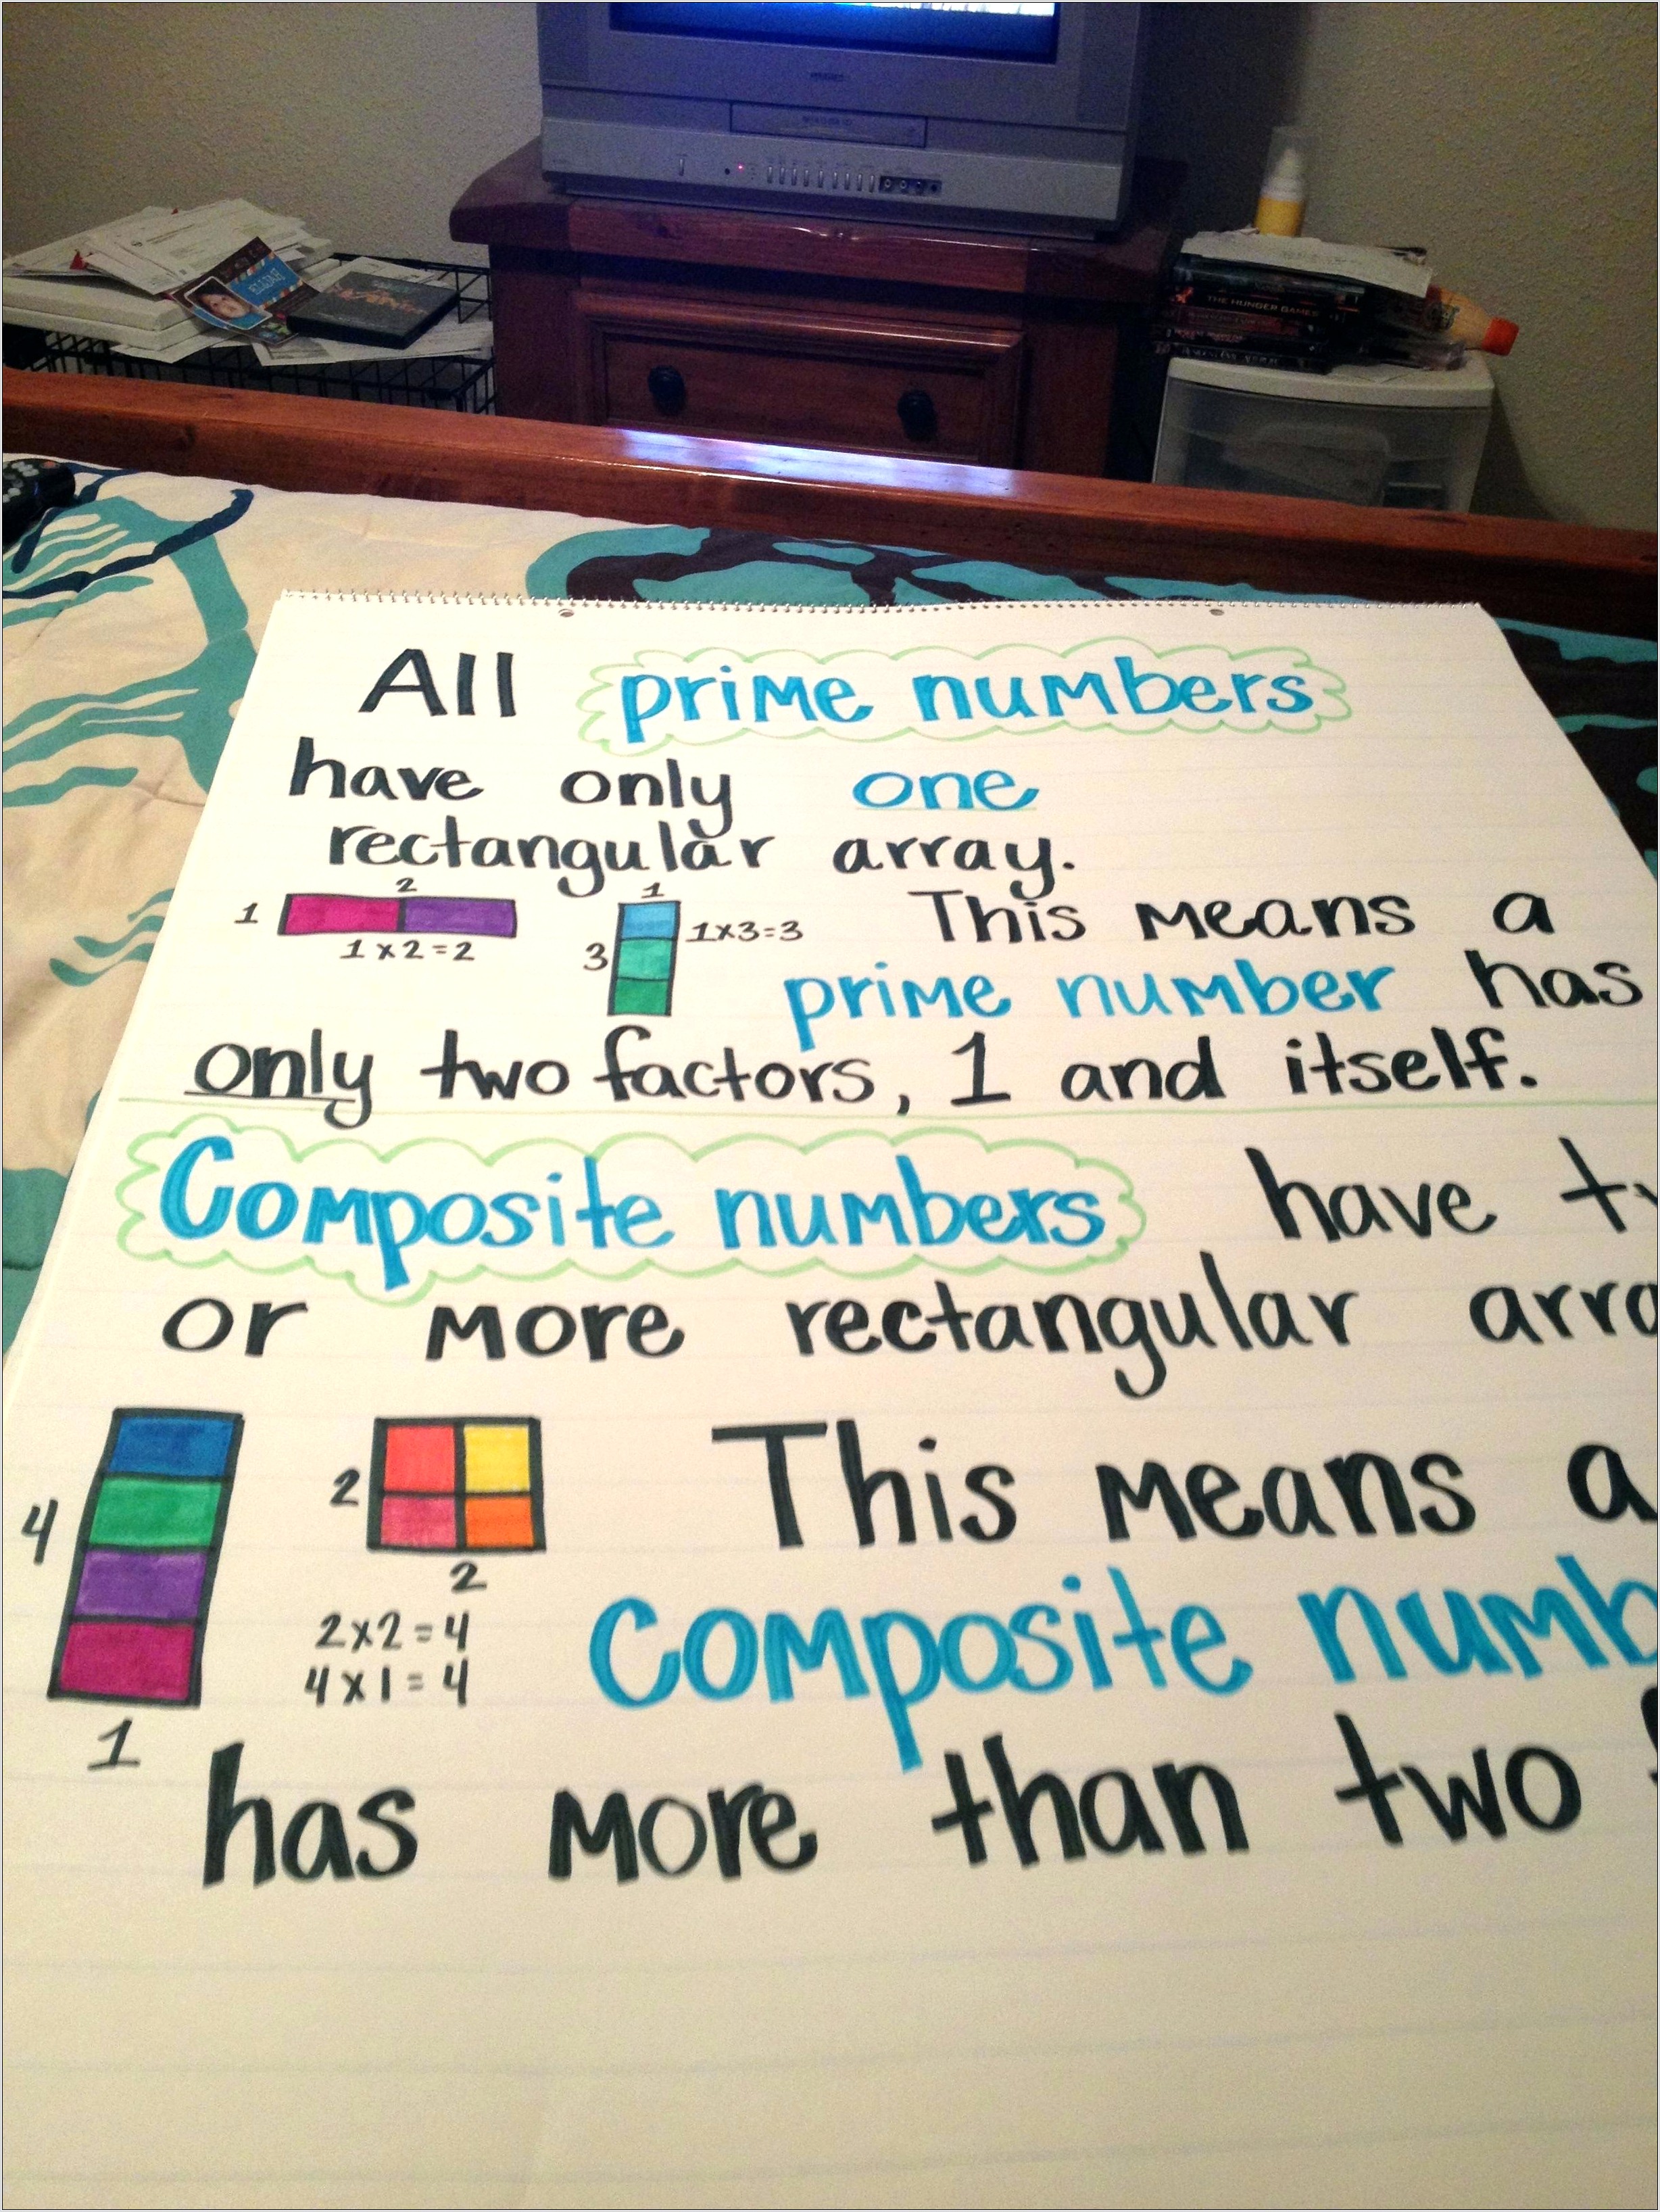 THE HUNGER GAMES
All prime numbers
have only one
rectangular array.
2
1
1x2=2
1
3
1x3=3
This means a
prime number has
only two factors, 1 and itself.
Composite numbers have
or more rectangular
4
1
2
2
2x2=4
4x1=4
This means a
composite
has more than two